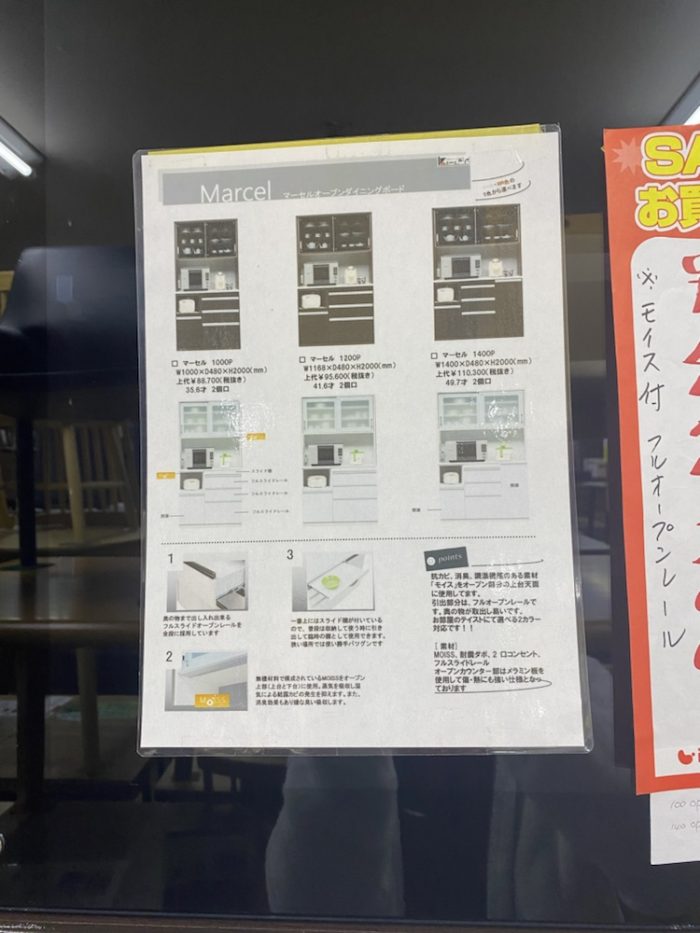 Marcel マーセルオープンダイニングボード
2色から選べます
□ マーセル 1000P
W1000×D480×H2000(mm)
上代¥88,700(税抜き)
35.6才 2個口
□ マーセル 1200P
W1168×D480×H2000(mm)
上代¥95,600(税抜き)
41.6才 2個口
□ マーセル 1400P
W1400×D480×H2000(mm)
上代¥110,300(税抜き)
49.7才 2個口
スライド棚
フルスライドレール
フルスライドレール
フルスライドレール
1
奥の物まで出し入れ出来る
フルスライドオープンレールを
全段に採用しています
3
一番上にはスライド棚が付いている
ので、普段は収納して使う時に引き
出して臨時の棚として使用できます。
狭い場所では使い勝手バツグンです
points
抗カビ、消臭、調湿機能のある素材
「モイス」をオープン部分の上台天面
に使用してます。
引出部分は、フルオープンレールで
す。奥の物が取出し易いです。
お部屋のテイストにて選べる2カラー
対応です!!
2
MOISS
無機材料で構成されているMOISSをオープン
上部(上台と下台)に使用。蒸気を吸収し湿
気による結露カビの発生を抑えます。また、
消臭効果もあり嫌な臭い吸収します。
[素材]
MOISS、耐震ダボ、2口コンセント、
フルスライドレール
オープンカウンター部はメラミン板を
使用して傷・熱にも強い仕様となっ
ております
SA
お買
※モイス付 フルオープンレール